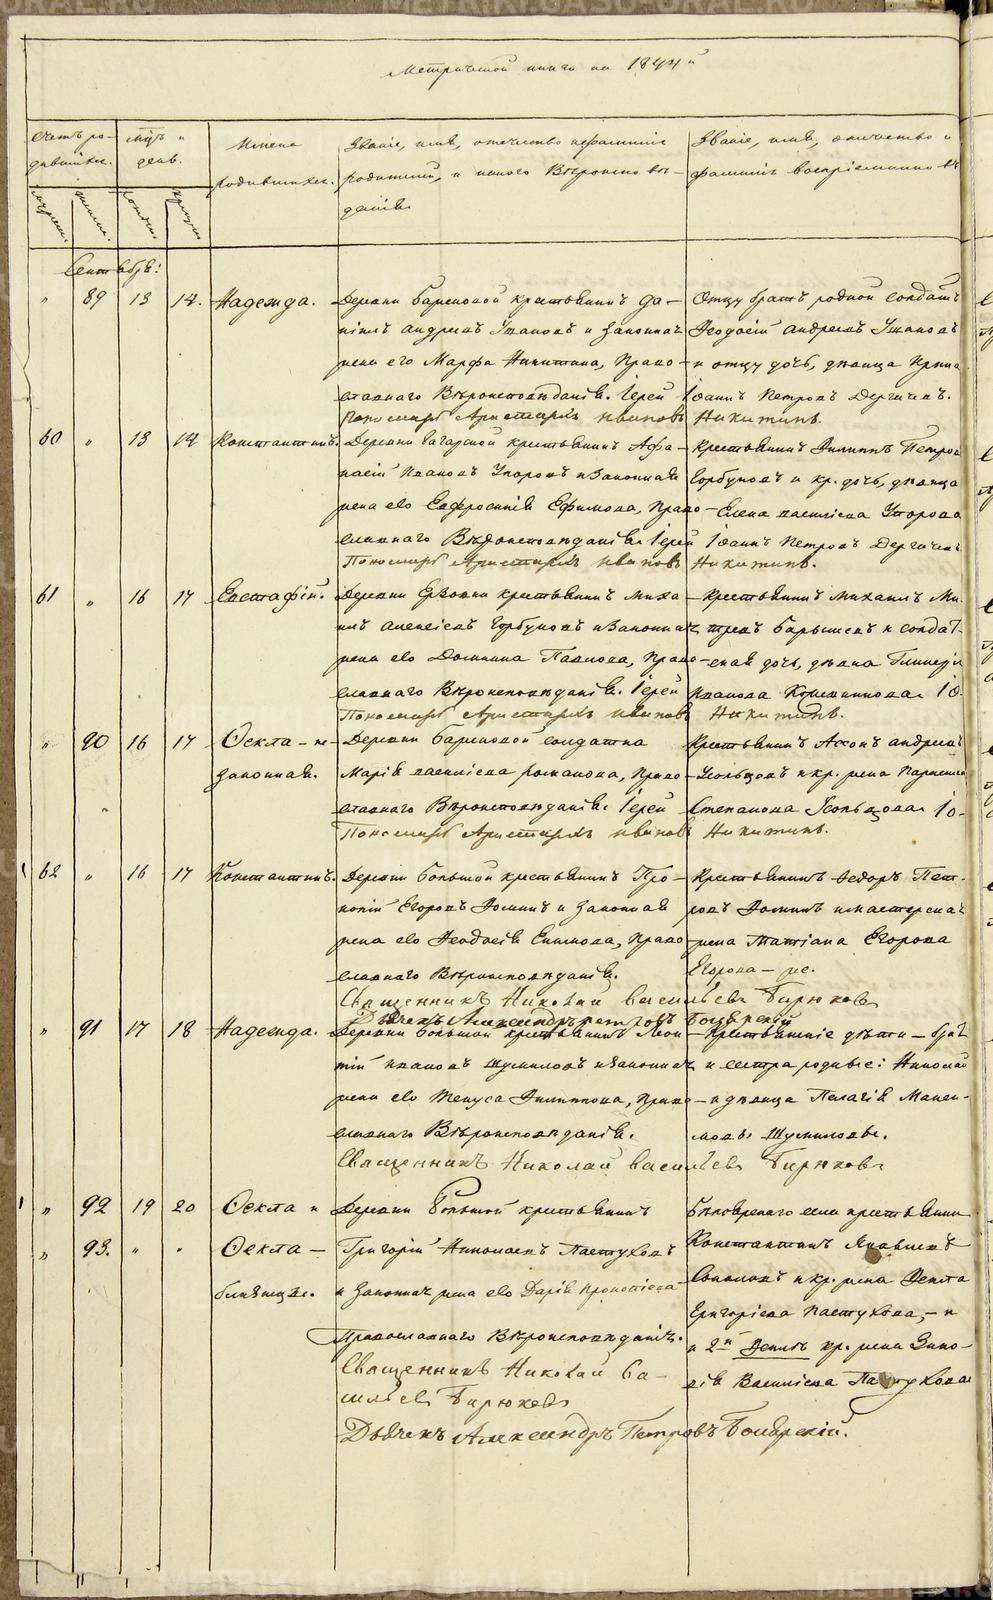 METRIKI.GASO-URAL.RU
Метрической книги на 1844й
Счетъ ро-
дившихся.
Мцъ и
день.
Имена
родившихся.
Званіе, имя, отечество и фамилія
родителей, и какого Вѣроисповѣ-
данія
Званіе, имя, отечество и
фамилія воспріемников
Сентябрь:
" 89 13 14. Надежда. Деревни Барсковой крестьянинъ Да-
ніилъ Андреевъ Ушаковъ и законная
жена его Марфа Никитина, Право-
славнаго Вѣроисповѣданія. Іерей Іоаннъ Петровъ Дергачевъ.
Пономарь Аристархъ Ивановъ Никитинъ.
Отцу братъ родной солдатъ
Феодосій Андреевъ Ушаковъ
и отцу дочь, дѣвица Ирина
60 " 13 14 Константинъ. Деревни Гагарской крестьянинъ Афа-
насій Ивановъ Упоровъ и законная
жена его Евфросинія Ефимова, Право-
славнаго Вѣроисповѣданія. Іерей Іоаннъ Петровъ Дергачевъ
Пономарь Аристархъ Ивановъ Никитинъ.
Крестьянинъ Филиппъ Петров
Горбуновъ и кр. дочь, дѣвица
Елена Васильева Упорова
61 " 16 17 Евстафій. Деревни крестьянинъ Миха-
илъ Алексіевъ Горбуновъ и законная
жена его Домнина Павлова, Право-
славнаго Вѣроисповѣданія. Іерей
Пономарь Аристархъ Ивановъ Никитинъ.
Крестьянинъ Михаилъ Ми-
тревъ Барышевъ и солдат-
ская дочь, дѣвка Гликерія
Иванова Іо-
" 90 16 17 Фекла - не-
законная.
Деревни Барсковой солдатка
Марія Васильева Романова, Право-
славнаго Вѣроисповѣданія. Іерей
Пономарь Аристархъ Ивановъ Никитинъ.
Крестьянинъ Андреевъ
Усольцовъ и кр. жена
Степанова Усольцова Іо-
62 " 16 17 Константинъ. Деревни Большой крестьянинъ Про-
копій Егоровъ Фоминъ и законная
жена его Феодосія Екимова, Право-
славнаго Вѣроисповѣданія.
Священникъ Николай Васильевъ Бирюковъ
Дьячекъ Александръ Петровъ Боярскій
Крестьянинъ Федоръ Пет-
ровъ Фоминъ и мастерская
жена Татіана Егорова
Егорова - же.
" 91 17 18 Надежда. Деревни Большой крестьянинъ Леон-
тій Ивановъ Шумиловъ и законная
жена его Филиппова, Право-
славнаго Вѣроисповѣданія.
Священникъ Николай Васильевъ Бирюковъ
Крестьянскіе дѣти - братъ
и сестра родные: Николай
и дѣвица Пелагія
Шумиловы.
" 92 19 20 Фекла и
" 93. " " Фекла -
близнецы.
Деревни Большой крестьянинъ
Григорій Николаевъ Пастуховъ
и законная жена его Дарія Прокопіева
Православнаго Вѣроисповѣданія.
Священникъ Николай Ва-
сильевъ Бирюковъ
Дьячекъ Александръ Петровъ Боярскій.
Бѣлоярскаго села крестьянинъ
Константинъ Яковлевъ
Соколовъ и кр. жена Фекла
Григоріева Пастухова, - и
и 2й Феклы кр. жена Зино-
вія Васильева Пастухова